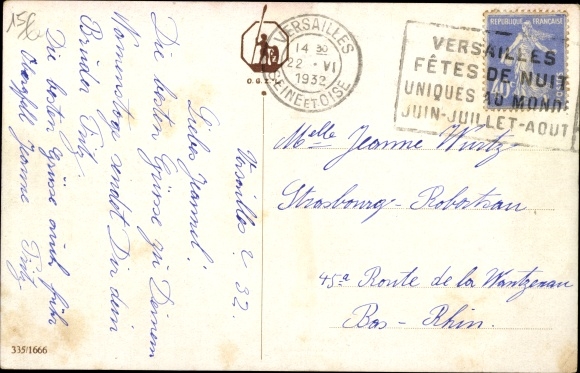 15f
Versailles 2. 32.
Liebes Jeannel!
Die besten Grüsse zu Deinem
Namenstage sendet Dir dein
Bruder Fritz.
Die besten Grüsse auch für
Jeanne Fritz
O.G.Z.-L.
VERSAILLES
14 30
22 - VI
1932
SEINE ET OISE
VERSAILLES
FÊTES DE NUIT
UNIQUES AU MONDE
JUIN-JUILLET-AOUT
REPUBLIQUE FRANÇAISE
40c
Melle Jeanne Wurtz
Strasbourg - Robertsau
45a Route de la Wantzenau
Bas-Rhin.
335/1666